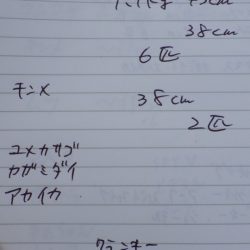 38cm
6匹
キンメ 38cm
2匹
ユメカサゴ
カガミダイ
アカイカ